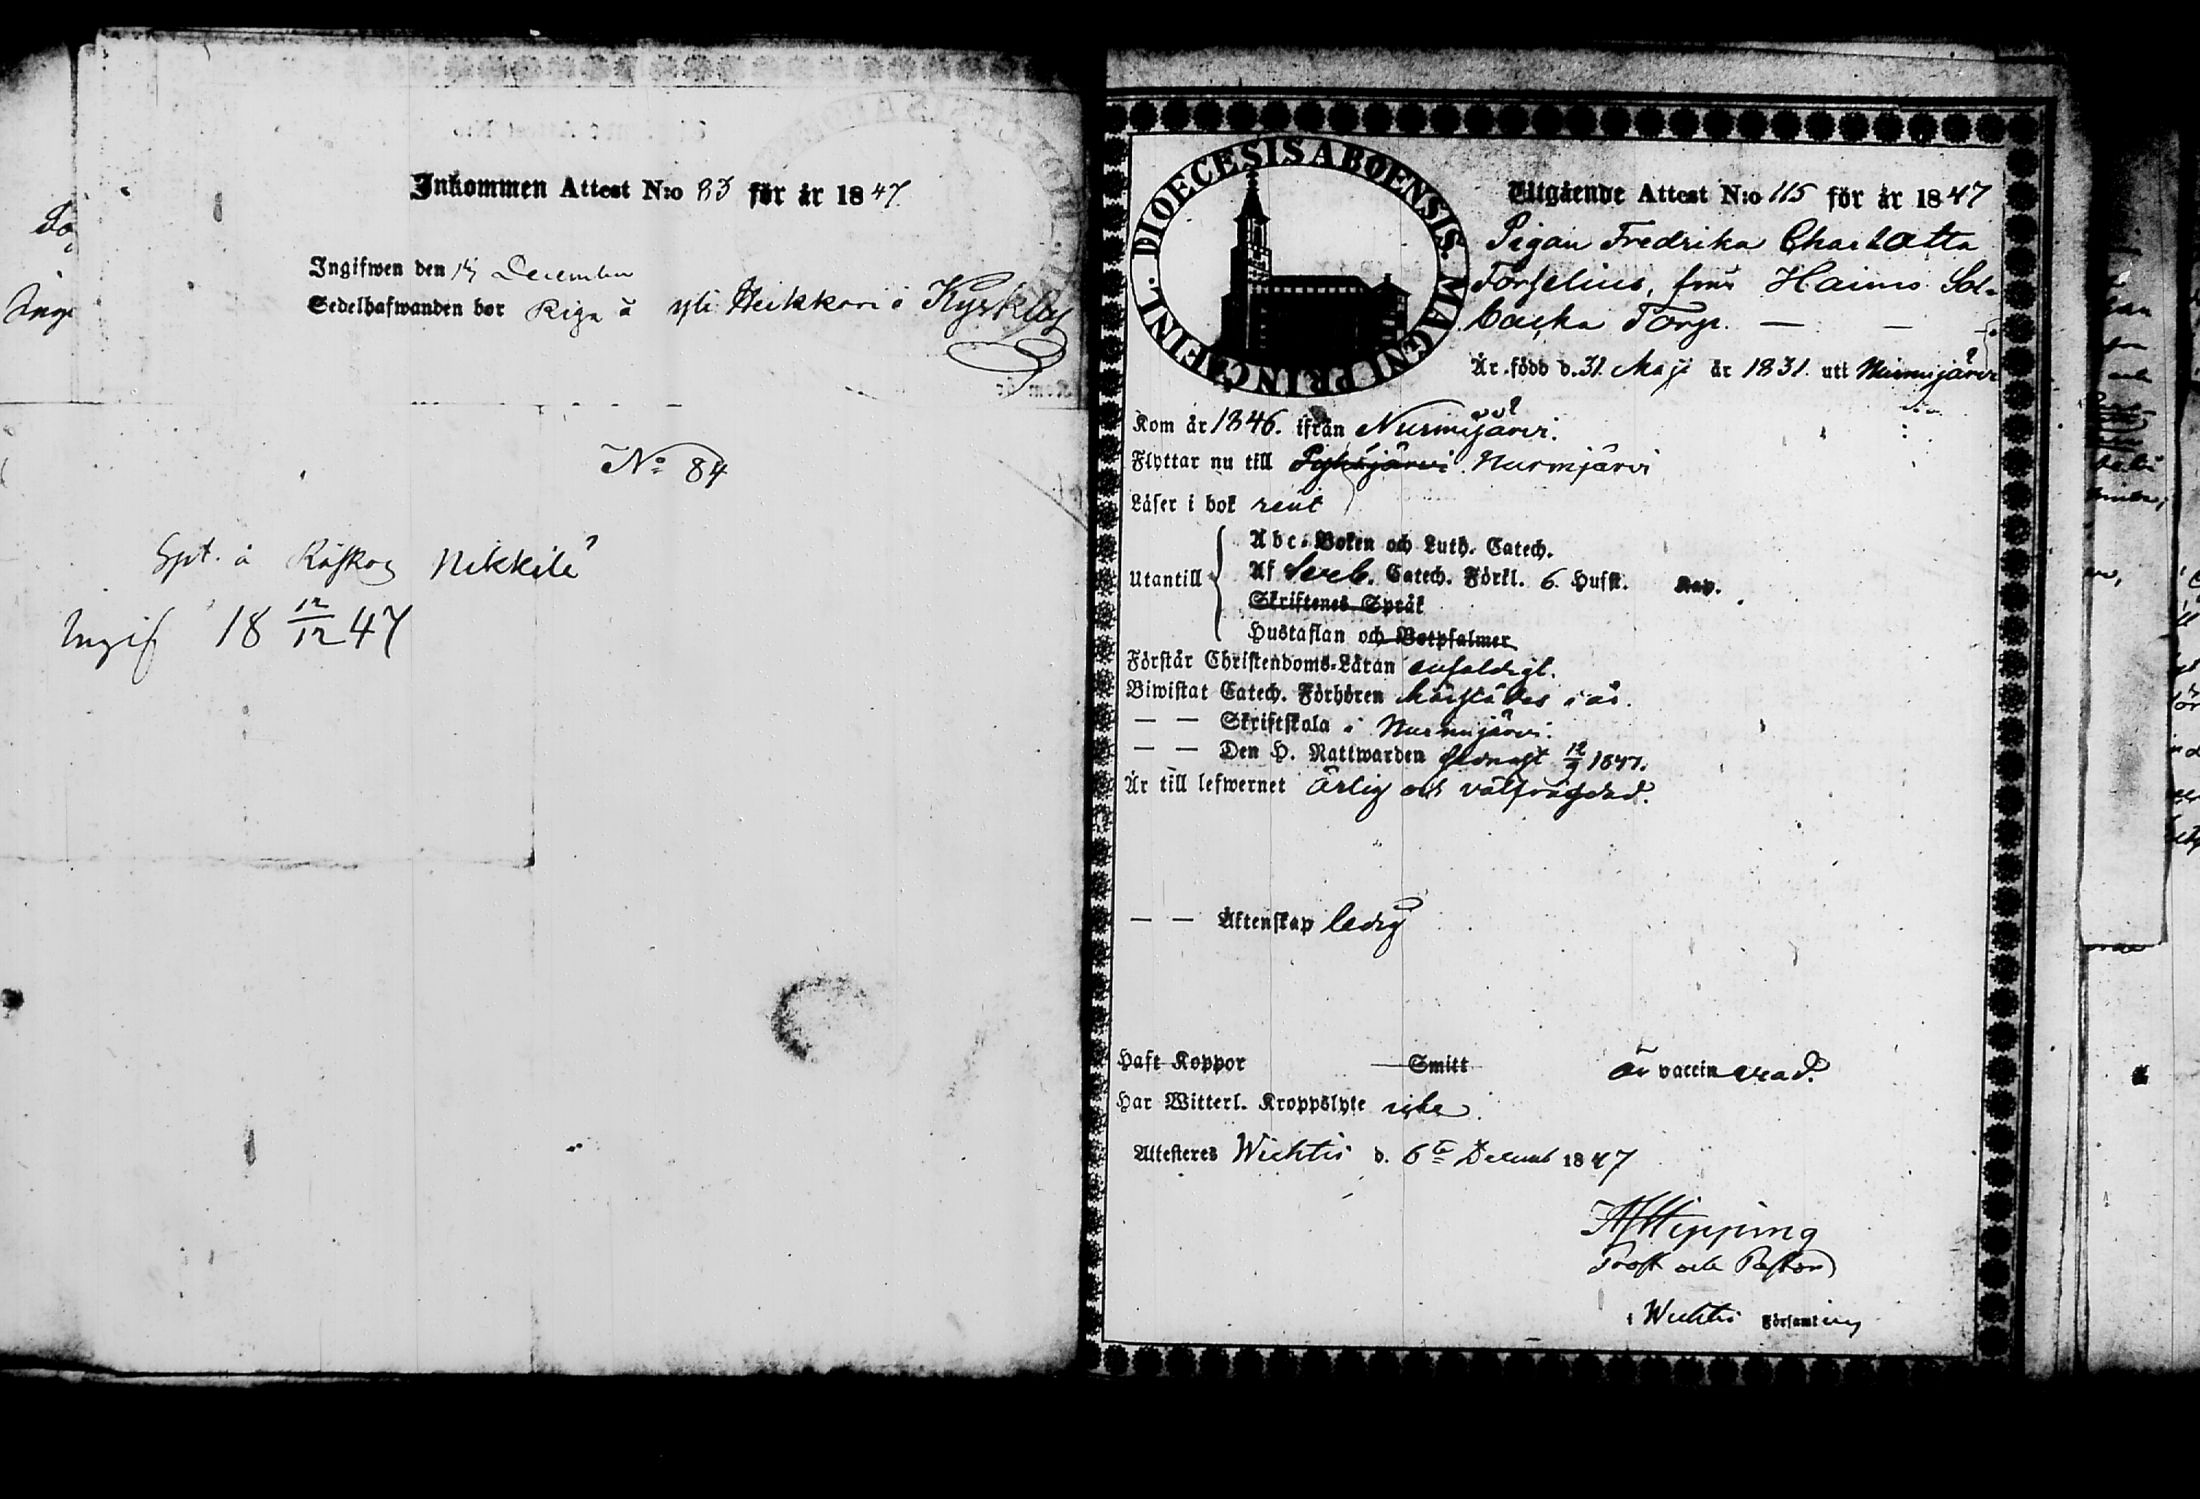 Inkommen Attest N:o 83 för år 1847.
Ingifwen den 14 December
Sedelhafwanden bor Piga å yli Heikkari i Kyrkby
No 84
Spt. å Röskog Nikkilä
Ingif 18 12/12 47
DIOECESIS ABOENSIS. MAGNI PRINC. FINL.
Utgående Attest N:o 115 för år 1847
Pigan Fredrika Charlotta
Forselius, från Haimo Sol-
backa Torp. — —
Är född d. 31. Maji år 1831. uti Nurmijärvi
Kom år 1846. ifrån Nurmijärvi.
Flyttar nu till Pyhäjärvi Nurmijärvi
Läser i bok rent
Utantill
Abc-Boken och Luth. Catech.
Af Sveb. Catech. Förkl. 6. Hufst. Kap.
Skriftenes Språk
Hustaflan och Botpsalmer
Förstår Christendoms-Läran enfaldigt.
Biwistat Catech. Förhören härstädes i år.
— — Skriftskola i Nurmijärvi.
— — Den H. Nattwarden sednast 12/9 1847.
Är till lefwernet ärlig och välfrägdad.
— — Äktenskap ledig
Haft Koppor — Smitt är vaccinerad.
Har Witterl. Kroppslyte icke.
Attesteres Wichtis d. 6te Decemb 1847
Hipping
Prost och Pastor
i Wichtis Församling